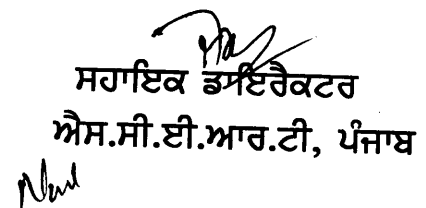 ਸਹਾਇਕ ਡਾਇਰੈਕਟਰ
ਐਸ.ਸੀ.ਈ.ਆਰ.ਟੀ, ਪੰਜਾਬ